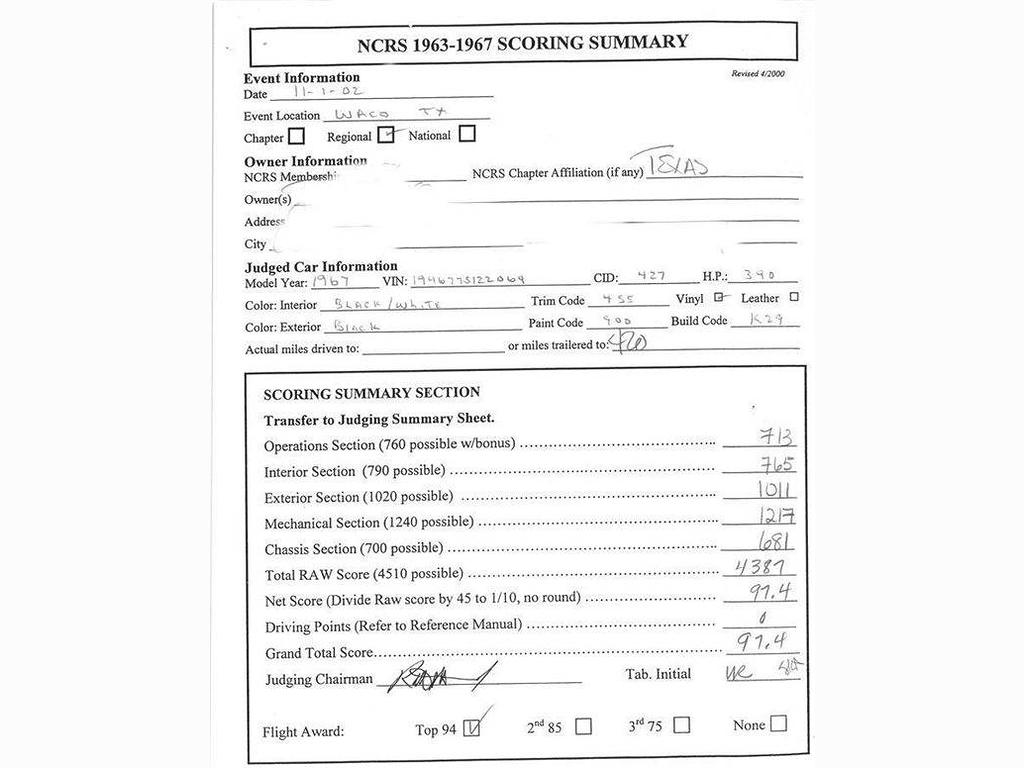 NCRS 1963-1967 SCORING SUMMARY
Revised 4/2000
Event Information
Date 11-1-02
Event Location WACO TX
Chapter Regional National
Owner Information
NCRS Membershi NCRS Chapter Affiliation (if any) TEXAS
Owner(s)
Address
City
Judged Car Information
Model Year: 1967 VIN: 194677S122069 CID: 427 H.P.: 390
Color: Interior BLACK/WHITE Trim Code 455 Vinyl Leather
Color: Exterior Black Paint Code 900 Build Code K29
Actual miles driven to: or miles trailered to: 420
SCORING SUMMARY SECTION
Transfer to Judging Summary Sheet.
Operations Section (760 possible w/bonus) 713
Interior Section (790 possible) 765
Exterior Section (1020 possible) 1011
Mechanical Section (1240 possible) 1217
Chassis Section (700 possible) 681
Total RAW Score (4510 possible) 4387
Net Score (Divide Raw score by 45 to 1/10, no round) 97.4
Driving Points (Refer to Reference Manual) 0
Grand Total Score 97.4
Judging Chairman Tab. Initial
Flight Award: Top 94 2nd 85 3rd 75 None